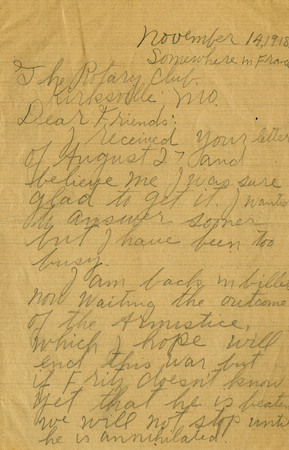 November 14, 1918
Somewhere in Franc
The Rotary Club.
Kirksville Mo.
Dear Friends:
I received your letter
of August 27 and
believe me I was sure
glad to get it. I wanted
to answer sooner
but I have been too
busy.
I am back in billets
now waiting the outcome
of the Armistice,
which I hope will
end this war but
if Fritz doesn't know
yet that he is beaten
we will not stop until
he is annihilated.